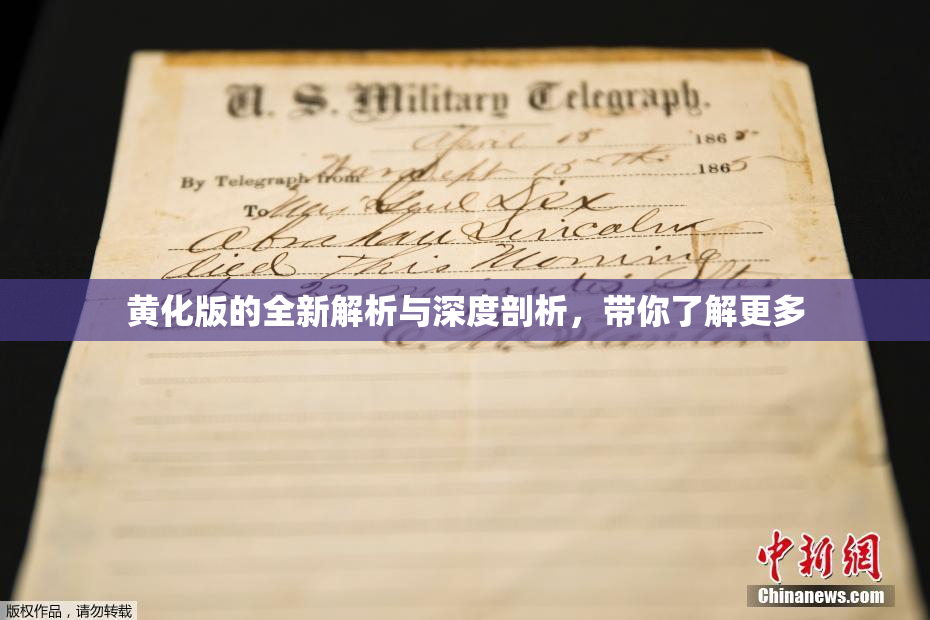 U. S. Military Telegraph.
April 15 1865
By Telegraph from War Dept 15th 1865
To Maj Genl Dix
Abraham Lincoln
died This Morning
22 minutes after
黄化版的全新解析与深度剖析，带你了解更多
中新網
Chinanews.com
版权作品，请勿转载